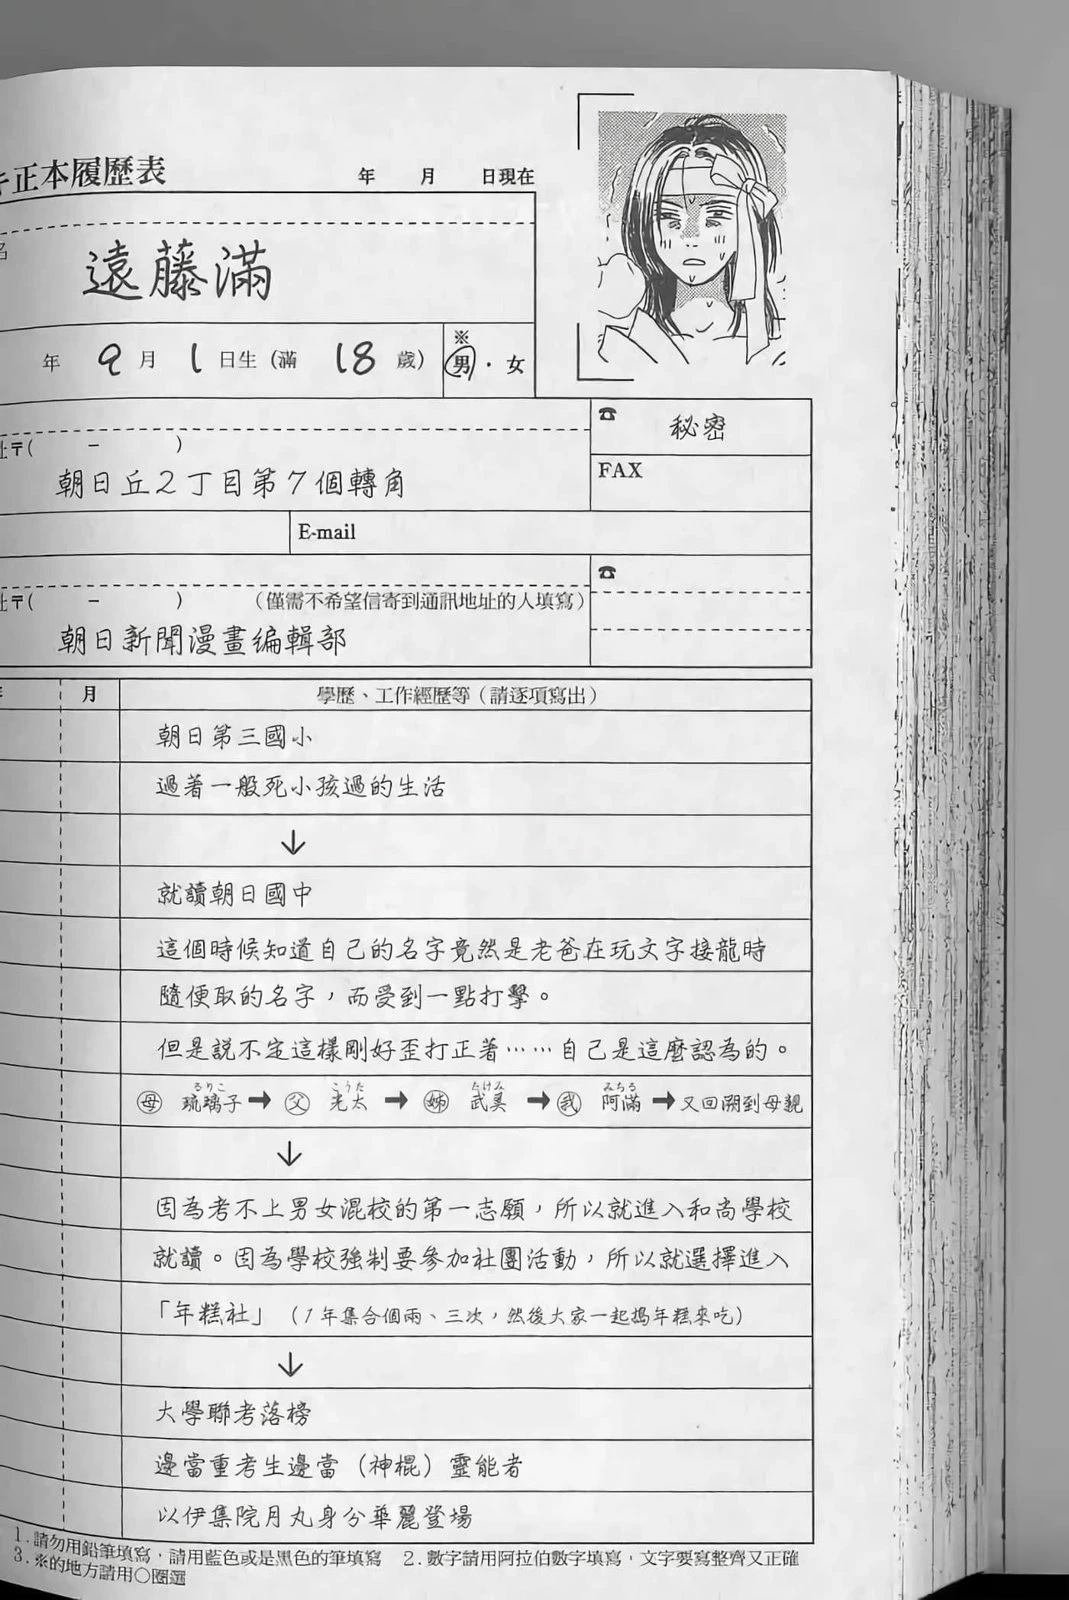 正本履歷表
年 月 日現在
名
遠藤滿
年 9月 1日生 (滿 18 歲)
※
男・女
址〒( － )
☎ 秘密
朝日丘2丁目第7個轉角
FAX
E-mail
址〒( － ) (僅需不希望信寄到通訊地址的人填寫)
☎
朝日新聞漫畫編輯部
年 月 學歷、工作經歷等(請逐項寫出)
朝日第三國小
過著一般死小孩過的生活
↓
就讀朝日國中
這個時候知道自己的名字竟然是老爸在玩文字接龍時
隨便取的名字，而受到一點打擊。
但是說不定這樣剛好歪打正著……自己是這麼認為的。
るりこ こうた たけみ みちる
母 琉璃子➡父 光太➡姊 武美➡我 阿滿➡又回溯到母親
↓
因為考不上男女混校的第一志願，所以就進入和尚學校
就讀。因為學校強制要參加社團活動，所以就選擇進入
「年糕社」(1年集合個兩、三次，然後大家一起搗年糕來吃)
↓
大學聯考落榜
邊當重考生邊當(神棍)靈能者
以伊集院月丸身分華麗登場
1.請勿用鉛筆填寫，請用藍色或是黑色的筆填寫 2.數字請用阿拉伯數字填寫，文字要寫整齊又正確
3.※的地方請用○圈選